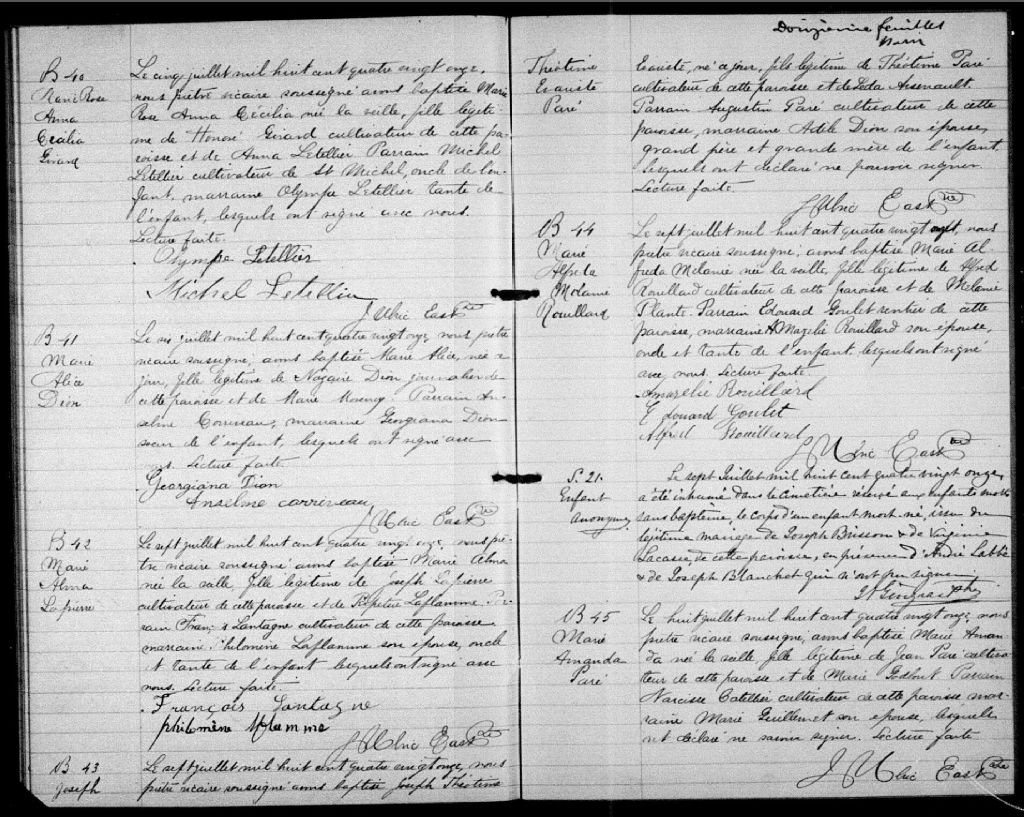 B 40
Marie Rose
Anna
Cécilia
Girard
Le cinq juillet mil huit cent quatre vingt onze,
nous prêtre vicaire soussigné avons baptisé Marie
Rose Anna Cécilia née la veille, fille légiti-
me de Honoré Girard cultivateur de cette pa-
roisse et de Anna Letellier Parrain Michel
Letellier cultivateur de St Michel, oncle de l'en-
fant, marraine Olympe Letellier tante de
l'enfant, lesquels ont signé avec nous.
Lecture faite.
Olympe Letellier
Michel Letellier
J Ulric East Ptre
B 41
Marie
Alice
Dion
Le six juillet mil huit cent quatre vingt onze, nous, prêtre
vicaire soussigné, avons baptisé Marie Alice, née ce
jour, fille légitime de Nazaire Dion journalier de
cette paroisse et de Marie Parrain An-
selme marraine Georgiana Dion
soeur de l'enfant, lesquels ont signé avec
nous. Lecture faite.
Georgiana Dion
Anselme
J Ulric East Ptre
B 42
Marie
Alma
Lapierre
Le sept juillet mil huit cent quatre vingt onze, nous prê-
tre vicaire soussigné avons baptisé Marie Alma
née la veille fille légitime de Joseph Lapierre
cultivateur de cette paroisse et de Laflamme Par-
rain François Lantagne cultivateur de cette paroisse
marraine Philomène Laflamme son épouse, oncle
et tante de l'enfant lesquels ont signé avec
nous. Lecture faite.
François Lantagne
philomène laflamme
J Ulric East Ptre
B 43
Joseph
Le sept juillet mil huit cent quatre vingt onze, nous
prêtre vicaire soussigné avons baptisé Joseph Théotime
Douzième feuillet
Théotime
Evariste
Paré
Evariste, né ce jour, fils légitime de Théotime Paré
cultivateur de cette paroisse et de Léda Arsenault.
Parrain Augustin Paré cultivateur de cette
paroisse, marraine Adèle Dion son épouse,
grand père et grande mère de l'enfant
lesquels ont déclaré ne pouvoir signer.
Lecture faite.
J Ulric East Ptre
B 44
Marie
Alfreda
Mélanie
Rouillard
Le sept juillet mil huit cent quatre vingt onze, nous
prêtre vicaire soussigné, avons baptisé Marie Al-
freda Mélanie née la veille, fille légitime de Alfred
Rouillard cultivateur de cette paroisse et de Mélanie
Plante. Parrain Edouard Goulet rentier de cette
paroisse, marraine Rouillard son épouse,
oncle et tante de l'enfant, lesquels ont signé
avec nous. Lecture faite.
Amarélie Rouillard
Edouard Goulet
Alfred Rouillard
J Ulric East Ptre
S. 21.
Enfant
anonyme
Le sept Juillet mil huit cent quatre vingt onze,
a été inhumé dans le cimetière réservé aux enfants morts
sans baptême, le corps d'un enfant mort-né, issu du
légitime mariage de Joseph Brisson & de Virginie
Lacasse, de cette paroisse, en présence d'André Labbé
& de Joseph Blanchet qui n'ont pu signer.
B 45
Marie
Amanda
Paré
Le huit juillet mil huit cent quatre vingt onze, nous
prêtre vicaire soussigné, avons baptisé Marie Aman-
da née la veille fille légitime de Jean Paré cultiva-
teur de cette paroisse et de Marie Godbout Parrain
Narcisse Catellier cultivateur de cette paroisse mar-
raine Marie Guillemet son épouse, lesquels
ont déclaré ne savoir signer. Lecture faite.
J Ulric East Ptre